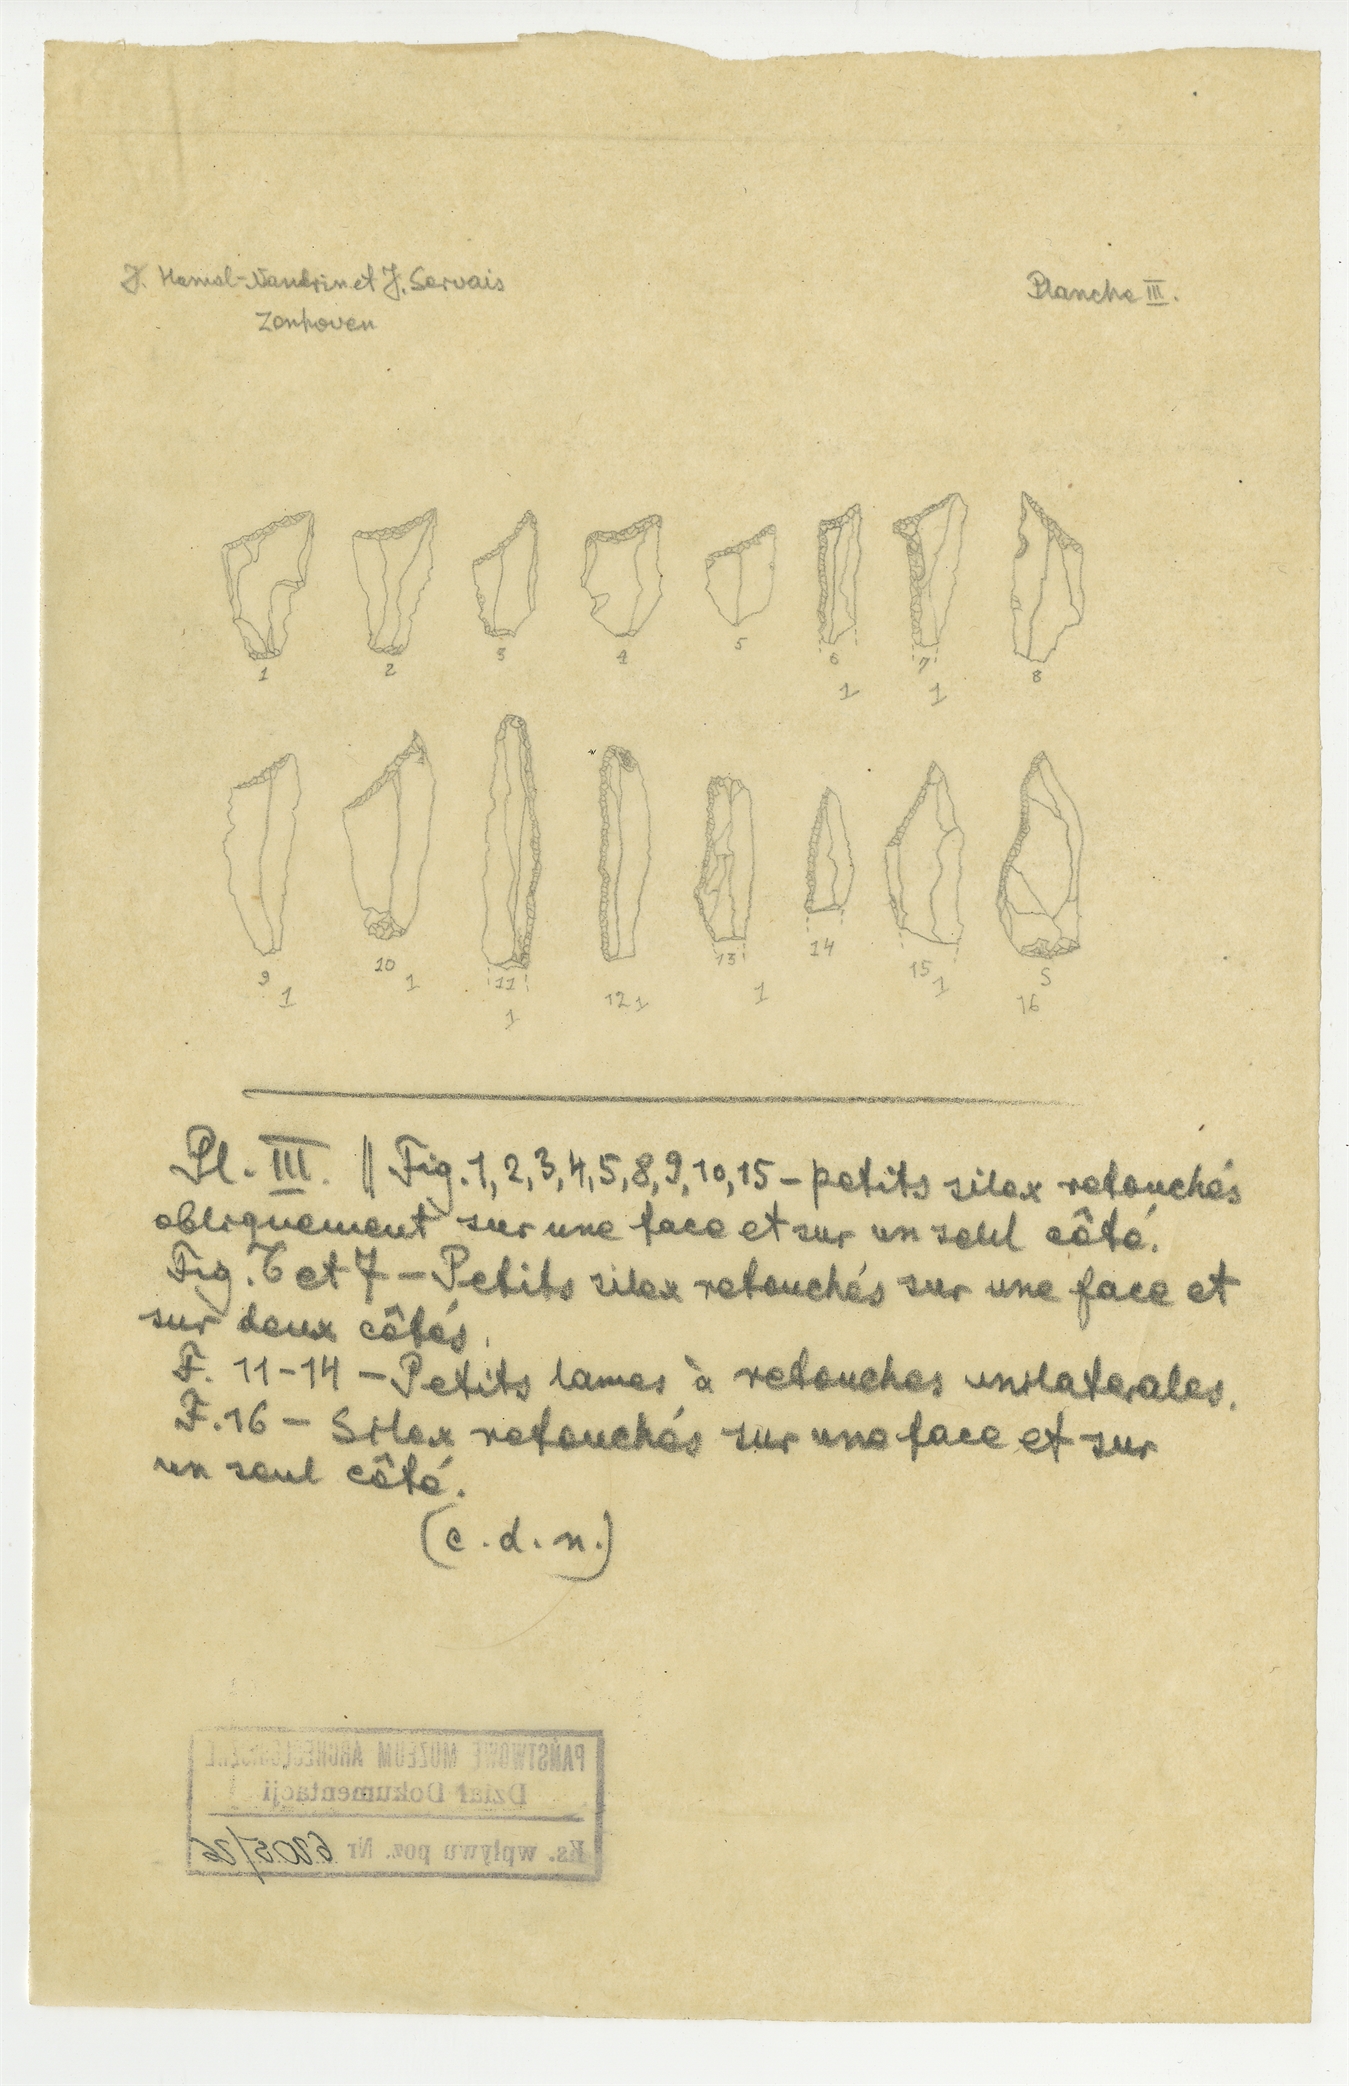 J. Hamal-Nandrin et J. Servais
Zonhoven
Planche III.
1 2 3 4 5 6 7 8
1 1
9 10 11 12 13 14 15 S
1 1 1 1 1 1 16
Pl. III. || Fig. 1, 2, 3, 4, 5, 8, 9, 10, 15 – petits silex retouchés
obliquement sur une face et sur un seul côté.
Fig. 6 et 7 – Petits silex retouchés sur une face et
sur deux côtés.
F. 11-14 – Petits lames à retouches unilaterales.
F. 16 – Silex retouchés sur une face et sur
un seul côté.
(c. d. n.)
PAŃSTWOWE MUZEUM ARCHEOLOGICZNE
Dział Dokumentacji
Ks. wpływu poz. Nr 6205/26